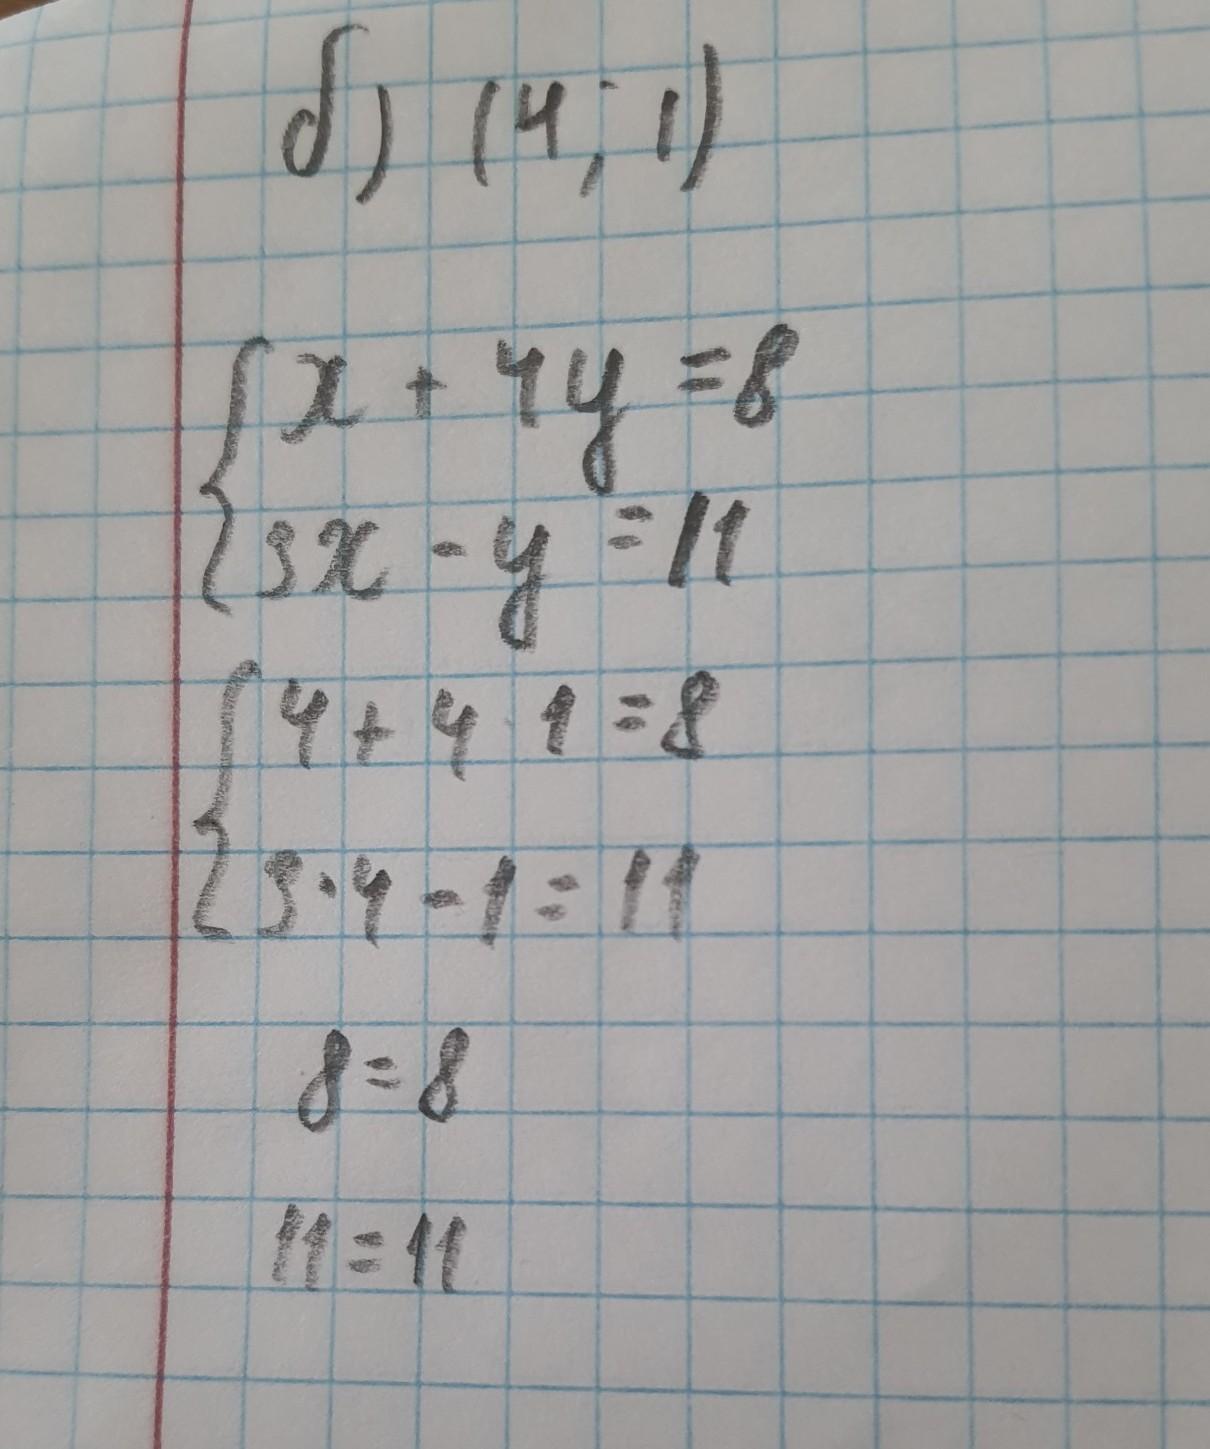 б) (4; 1)
{x + 4y = 8
{3x - y = 11
{4 + 4 · 1 = 8
{3·4 - 1 = 11
8 = 8
11 = 11